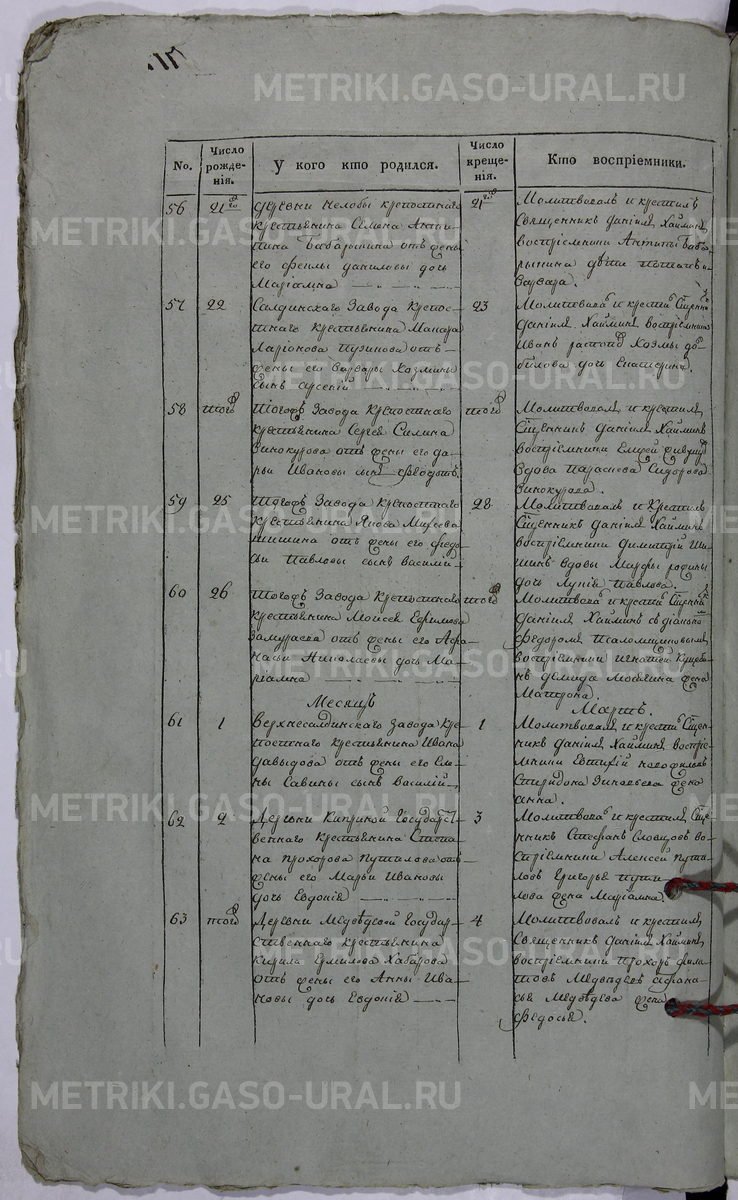 METRIKI.GASO-URAL.RU
No.
Число рожде-
нія.
У кого кто родился.
Число креще-
нія.
Кто воспріемники.
56
21го
деревни Нелобы крепостнаго
крестьянина Семена Анти-
пина Бабарыкина отъ жены
его Феклы Даниловы дочь
Маріамна
21го
Молитвовалъ и крестилъ
Священникъ Даніилъ Хайминъ
воспріемники Антипъ Баба-
рыкина дочь
Варвара.
57
22
Салдинскаго Завода крепос-
тнаго крестьянина Макара
Ларіонова Пузанова отъ
жены его Варвары Козмины
сынъ Арсеній
23
Молитвовалъ и крестилъ Сщенникъ
Даніилъ Хайминъ воспріемники
Иванъ Козмы До-
билова дочь Екатерина.
58
тогожъ
Тогожъ Завода крепостнаго
крестьянина Сергея Силина
Винокурова отъ жены его Да-
рьи Ивановы сынъ Федотъ.
тогожъ
Молитвовалъ и крестилъ
Сщенникъ Даніилъ Хайминъ
воспріемники Елисей
вдова Параскева Сидорова
Винокурова.
59
25
Тогожъ Завода крепостнаго
крестьянина Якова Михеева
Шишина отъ жены его Федо-
сьи Павловы сынъ Василій
28
Молитвовалъ и крестилъ
Сщенникъ Даніилъ Хайминъ
воспріемники Димитрій Ши-
шинъ вдовы Марфы Родины
дочь Павлова.
60
26
Тогожъ Завода крепостнаго
крестьянина Моисея Ефимова
Замураева отъ жены его Афа-
насьи Николаевы дочь Ма-
ріамна
тогожъ
Молитвовалъ и крестилъ Сщенникъ
Даніилъ Хайминъ съ діакономъ
Федоромъ Псаломщиковымъ
воспріемники Игнатей
Демида жена
Матрона.
Месяцъ
Мартъ.
61
1
Верхнесалдинскаго завода кре-
постнаго крестьянина Ивана
Давыдова отъ жены его Еле-
ны Савины сынъ Василій
1
Молитвовалъ и крестилъ Сщен-
никъ Даніилъ Хайминъ воспріе-
мники Евтихій Новофиловъ
Спиридона Зиновьева жена
Анна.
62
2
Деревни Киприной Государст-
веннаго крестьянина Степа-
на Прохорова Путилова отъ
жены его Марьи Ивановы
дочь Евдокія
3
Молитвовалъ и крестилъ Сще-
нникъ Стефанъ Словцовъ во-
спріемники Алексей Пути-
ловъ Григорья Пути-
лова жена Маріамна.
63
тогожъ
Деревни Медведевой Государ-
ственнаго крестьянина
Кирила Ермилова Хабарова
отъ жены его Анны Ива-
новы дочь Евдокія
4
Молитвовалъ и крестилъ
Священникъ Даніилъ Хайминъ
воспріемники Прохоръ Фила-
товъ Медведевъ Афана-
сья Медведева жена
Федосья.